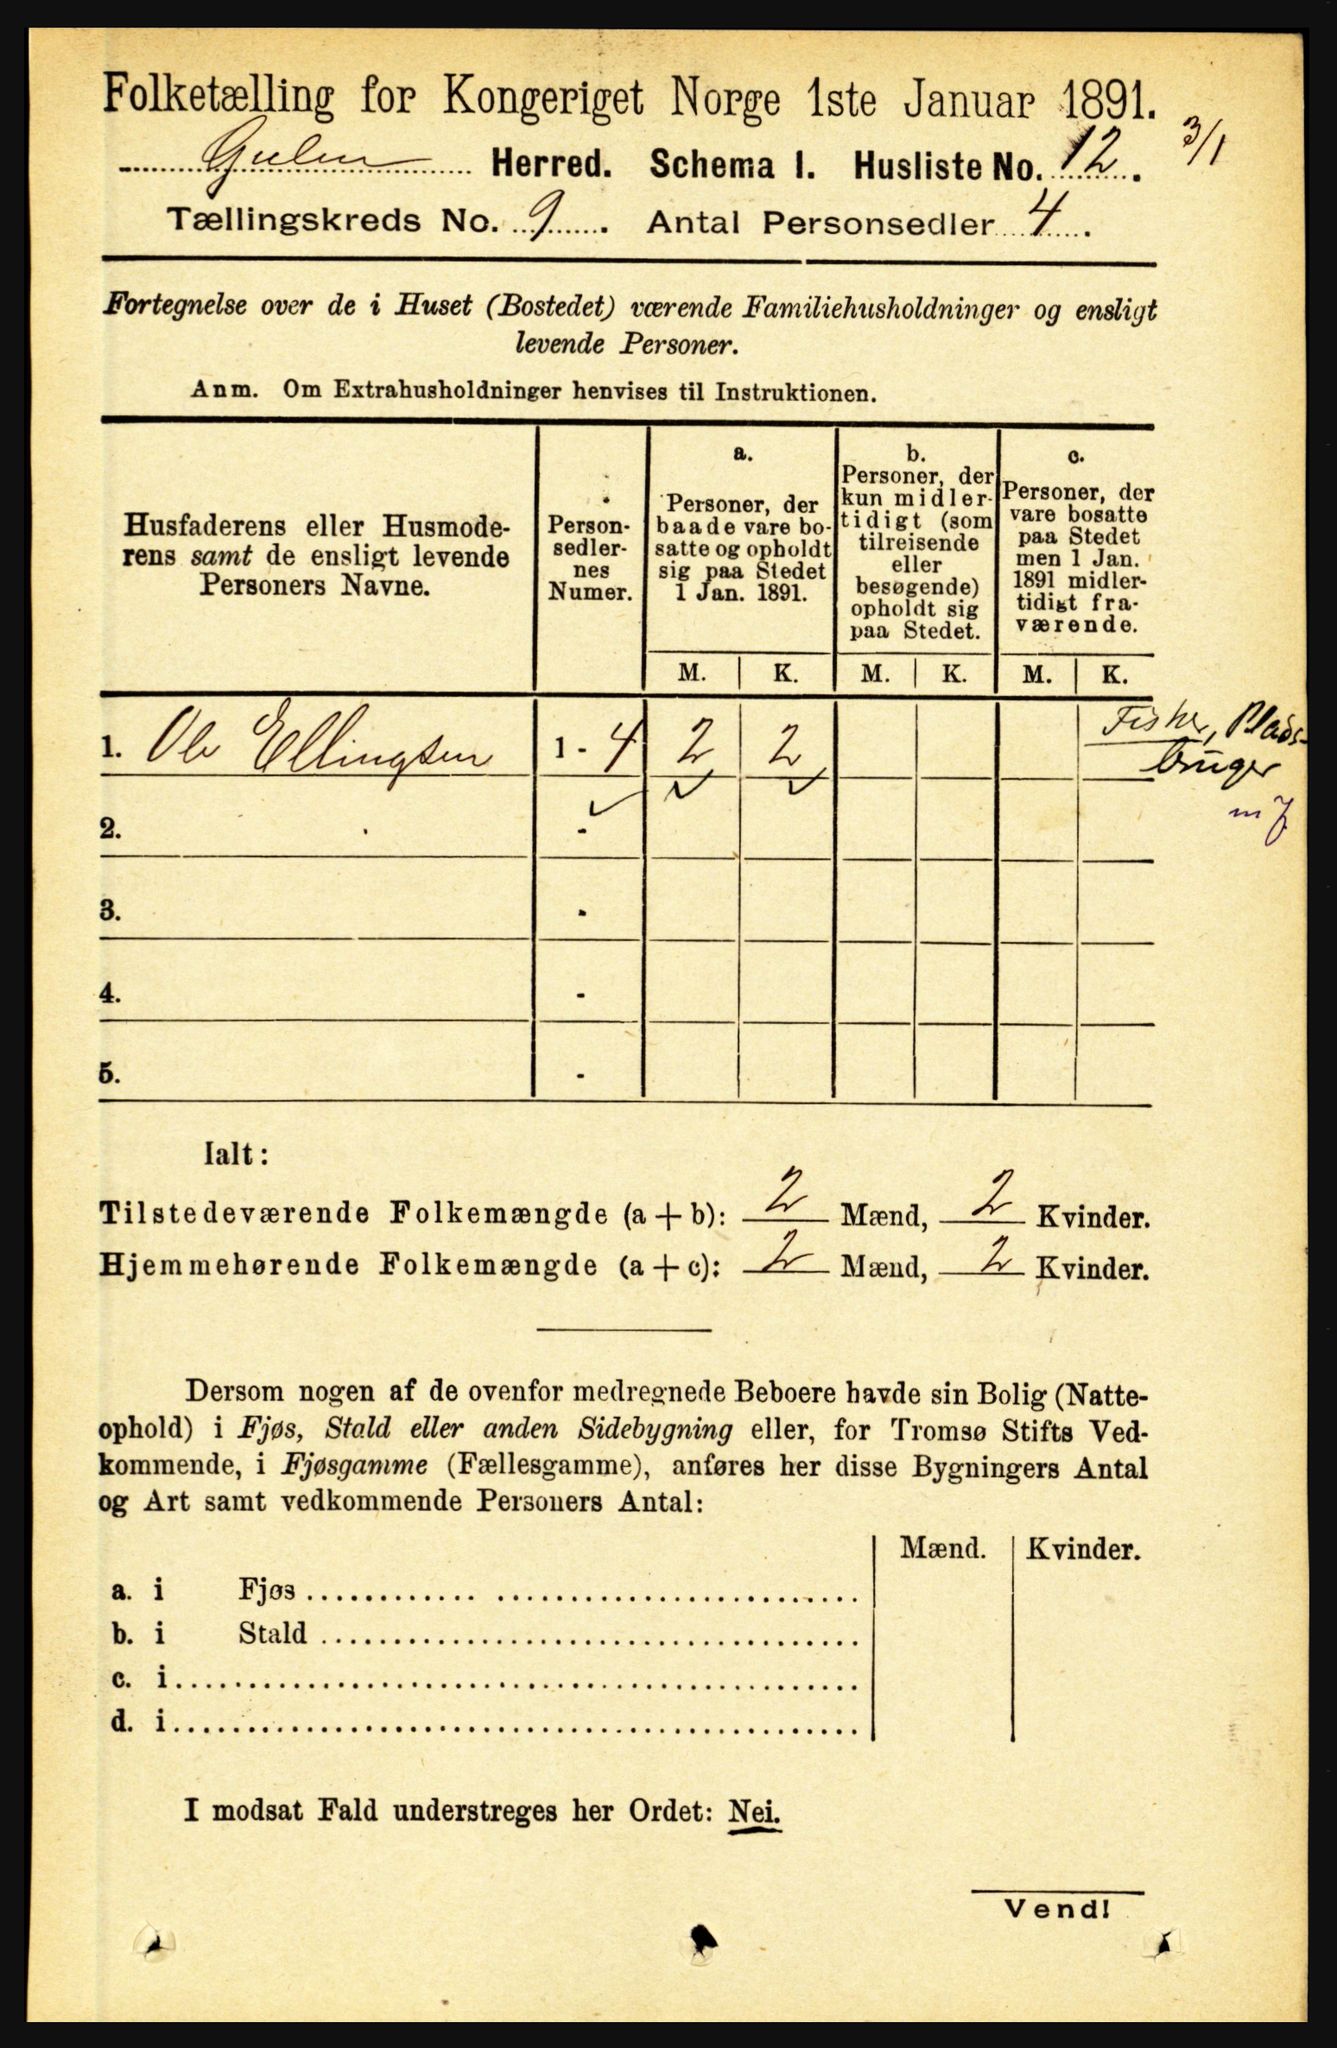 Folketælling for Kongeriget Norge 1ste Januar 1891.
3/1
Gulen Herred. Schema I. Husliste No. 12.
Tællingskreds No. 9. Antal Personsedler 4.
Fortegnelse over de i Huset (Bostedet) værende Familiehusholdninger og ensligt
levende Personer.
Anm. Om Extrahusholdninger henvises til Instruktionen.
Husfaderens eller Husmode-
rens samt de ensligt levende
Personers Navne.
Person-
sedler-
nes
Numer.
a.
Personer, der
baade vare bo-
satte og opholdt
sig paa Stedet
1 Jan. 1891.
b.
Personer, der
kun midler-
tidigt (som
tilreisende
eller
besøgende)
opholdt sig
paa Stedet.
c.
Personer, der
vare bosatte
paa Stedet
men 1 Jan.
1891 midler-
tidigt fra-
værende.
M. K. M. K. M. K.
1. Ole Ellingsen 1 - 4 2 2
Fisker, Plads-
bruger
m J
2. -
3. -
4. -
5. -
Ialt:
Tilstedeværende Folkemængde (a + b): 2 Mænd, 2 Kvinder.
Hjemmehørende Folkemængde (a + c): 2 Mænd, 2 Kvinder.
Dersom nogen af de ovenfor medregnede Beboere havde sin Bolig (Natte-
ophold) i Fjøs, Stald eller anden Sidebygning eller, for Tromsø Stifts Ved-
kommende, i Fjøsgamme (Fællesgamme), anføres her disse Bygningers Antal
og Art samt vedkommende Personers Antal:
Mænd. Kvinder.
a. i Fjøs
b. i Stald
c. i
d. i
I modsat Fald understreges her Ordet: Nei.
Vend!